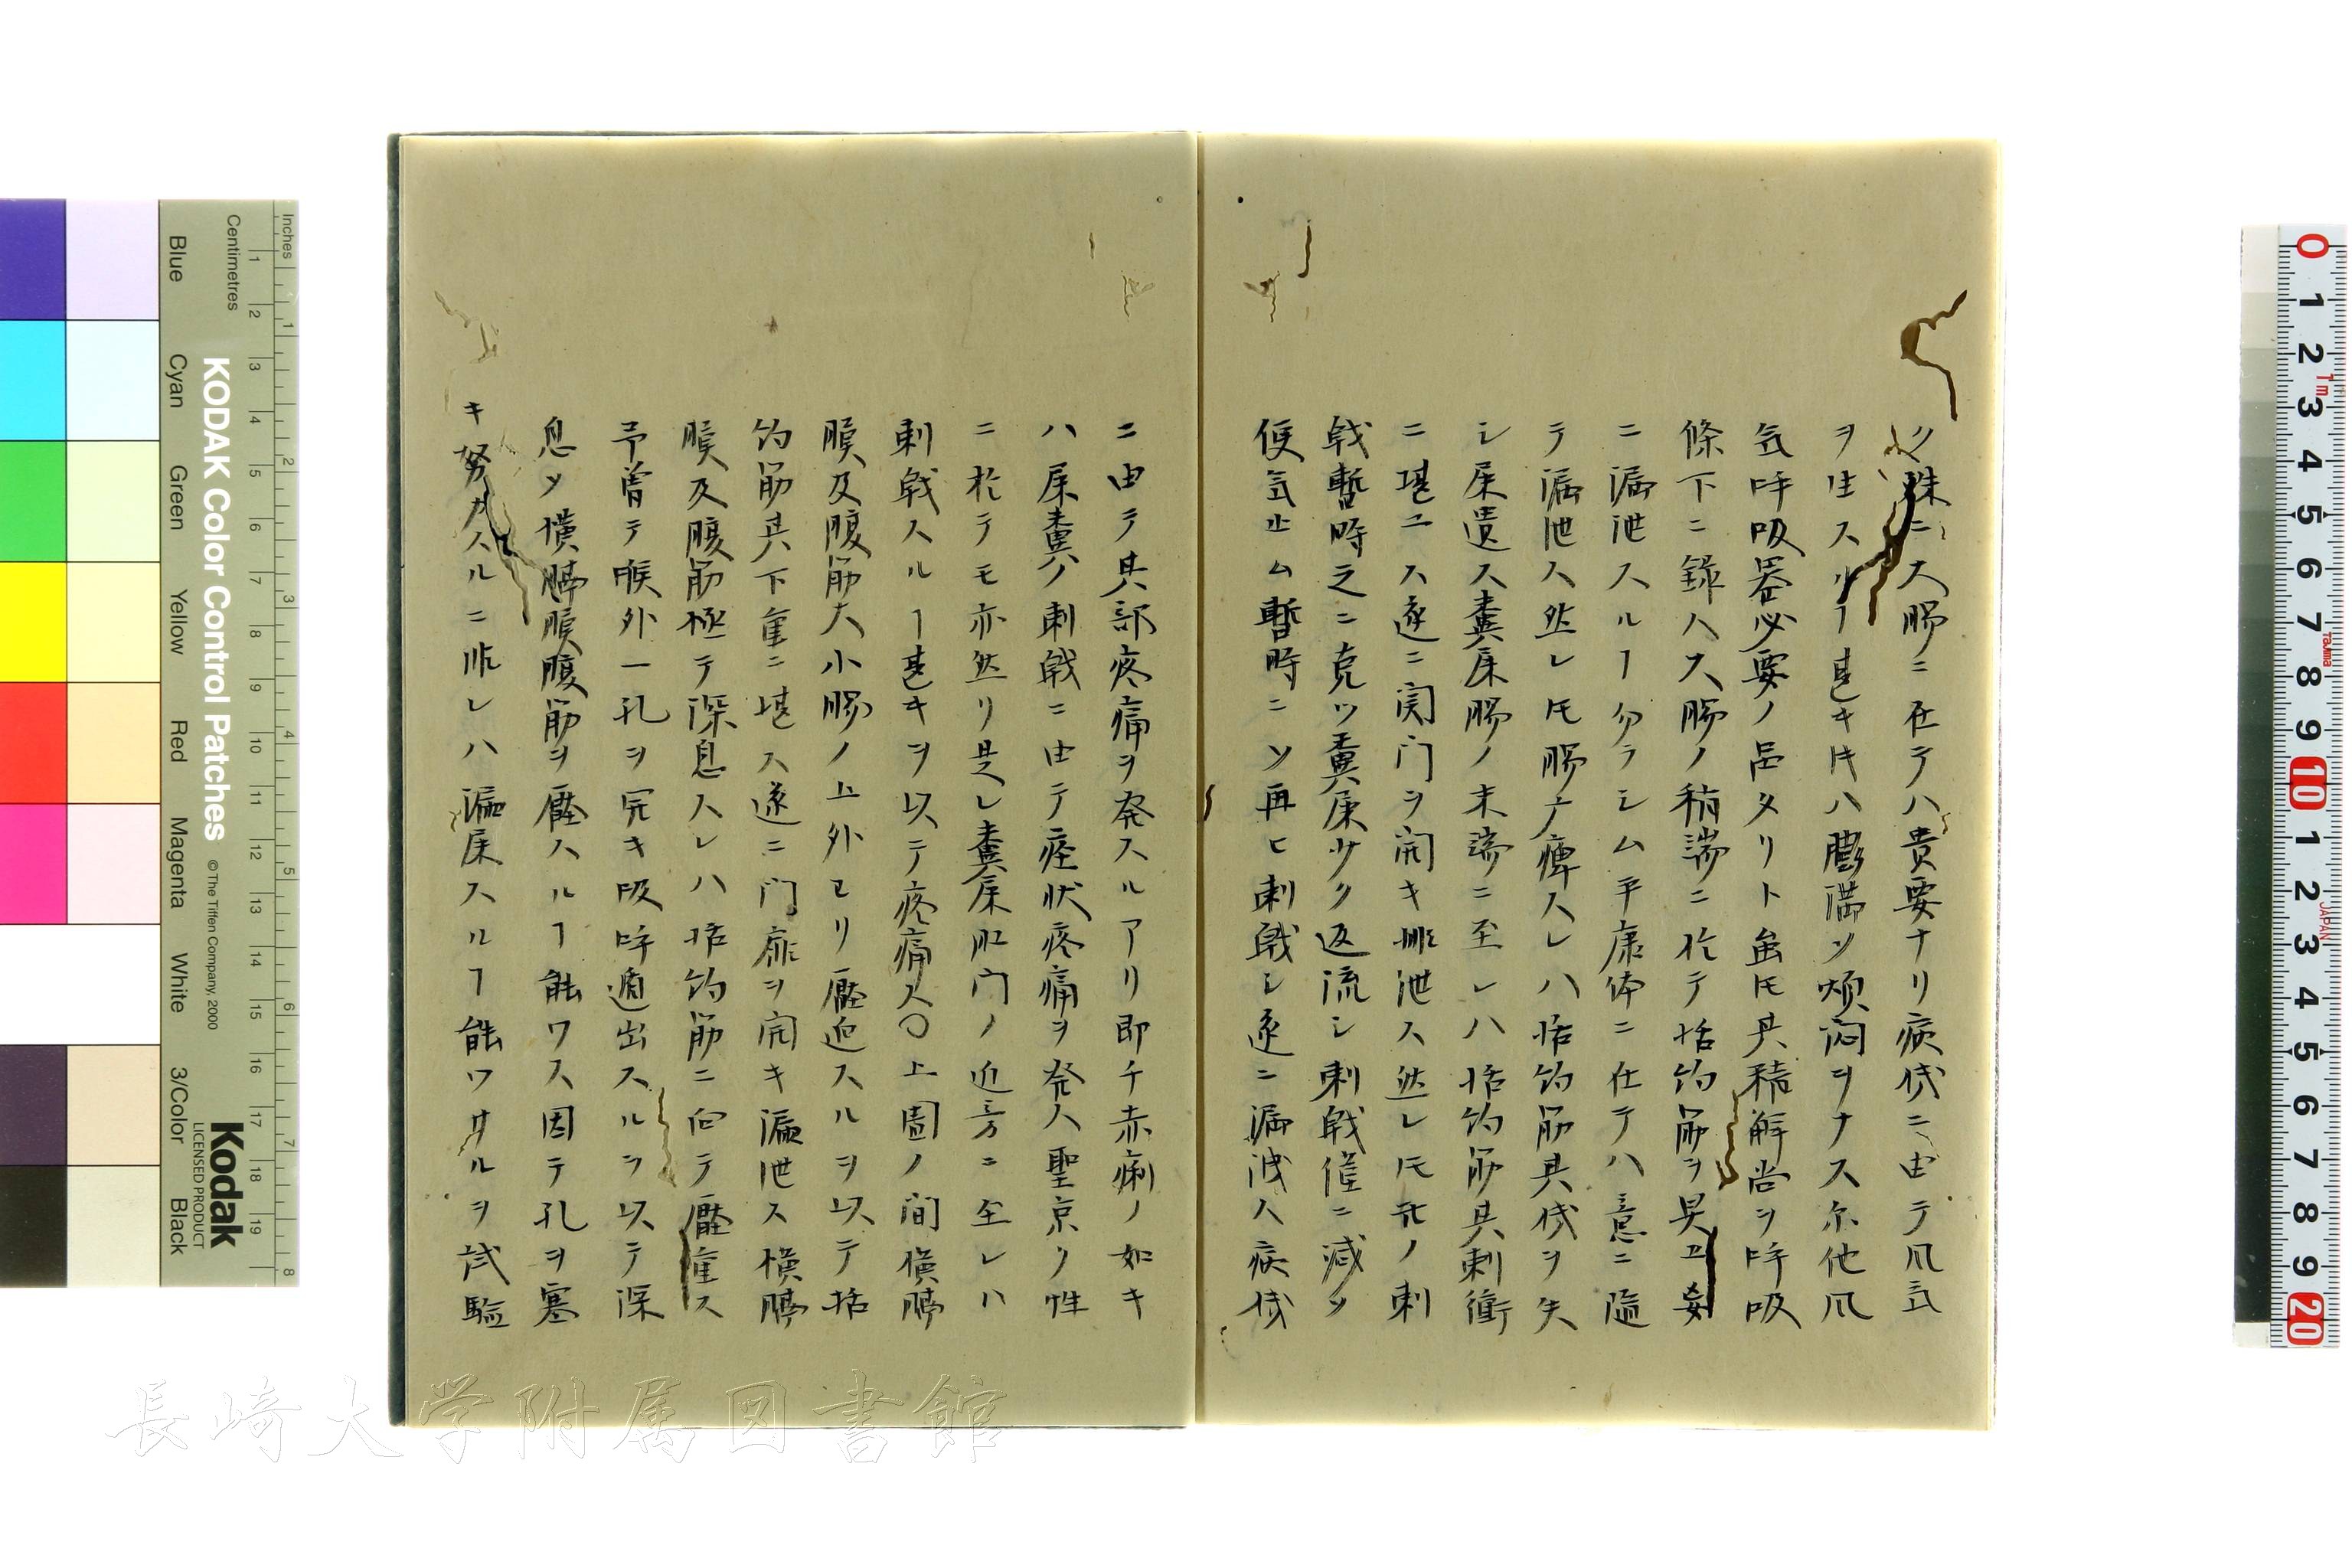 ク殊ニ大膓ニ在テハ貴要ナリ病患ニ由テ風気
ヲ生スルヿ甚キ𪜈ハ膨満ソ煩悶ヲナス尓他風
気呼吸器必要ノ品タリト虽𪜈其積解尚ヲ呼吸
條下ニ録ス大膓ノ稍端ニ於テ括約筋ヲ具
ニ漏泄スルヿ勿ラシム平康体ニ在テハ意ニ隨
テ漏泄ス然レ𪜈膓ナ痺スレハ括約筋其 ヲ失
シ屎遺ス糞屎膓ノ末端ニ至レハ括約筋其刺衝
ニ堪ユス遂ニ関門ヲ開キ排泄ス然レ𪜈 ノ刺
戟暫時之ニ克ツ糞屎少ク返流シ刺戟僅ニ減ソ
便気止ム暫時ニソ再ヒ刺戟シ遂ニ漏洩ス病
ニ由テ其部疼痛ヲ発スルアリ即チ赤痢ノ如キ
ハ屎糞ノ刺戟ニ由テ痙状疼痛ヲ発ス聖京ク性
ニ於テモ亦然リ是レ糞屎肛门ノ近旁ニ至レハ
刺戟スルヿ甚キヲ以テ疼痛ス〇上圊ノ間横膈
膜及腹筋大小膓ノ上外ヨリ壓迫スルヲ以テ括
約筋其下重ニ堪ス遂ニ门扉ヲ開キ漏泄ス横膈
膜及腹筋極テ深息スレハ括約筋ニ向テ壓重ス
予曽テ喉外一孔ヲ穿キ吸呼遁出スルヲ以テ深
息ソ横膈膜腹筋ヲ壓スルヿ能ワス因テ孔ヲ塞
キ努力スルニ非レハ漏屎スルヿ能ワサルヲ試驗
KODAK Color Control Patches
© The Tiffen Company, 2000
Kodak
LICENSED PRODUCT
Inches
Centimetres
Blue Cyan Green Yellow Red Magenta White 3/Color Black
長崎大学附属図書館